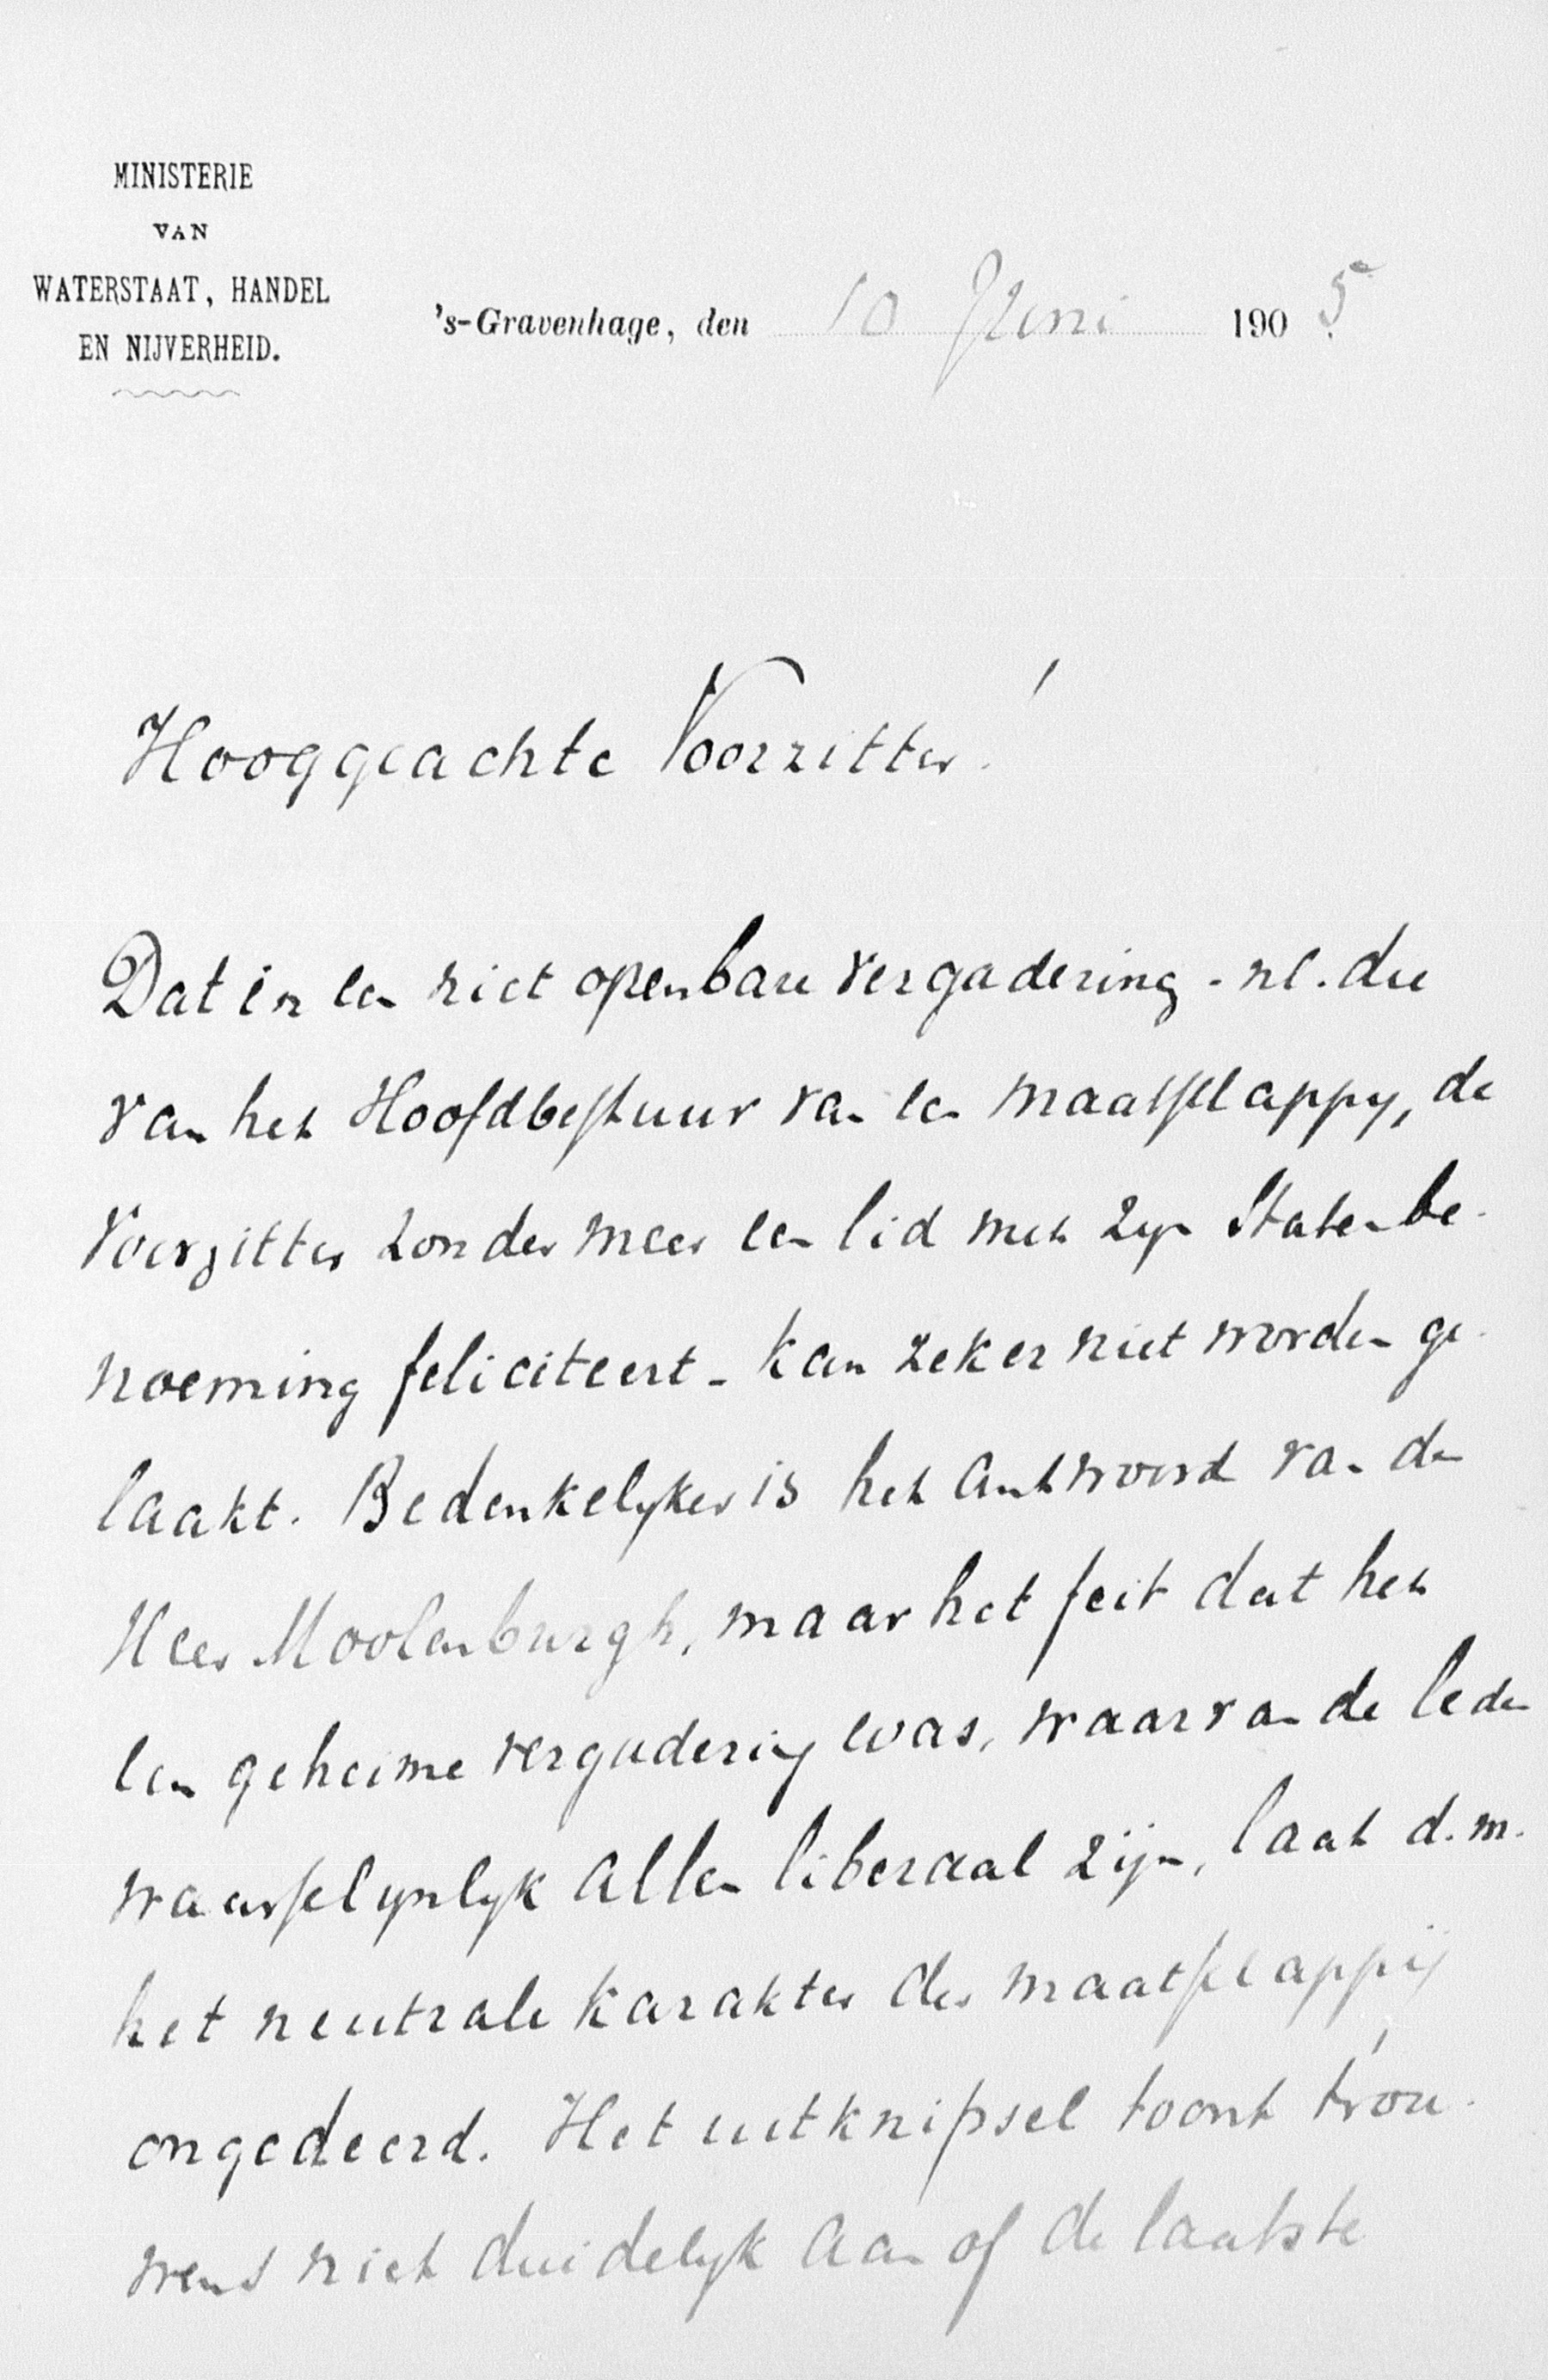 MINISTERIE
VAN
WATERSTAAT, HANDEL
EN NIJVERHEID.
's-Gravenhage, den 10 Juni 1905
Hooggeachte Voorzitter!
Dat in een niet openbare vergadering - nl. die
van het Hoofdbestuur van een maatschappy, de
Voorzitter zonder meer een lid met zyn Statenbe-
noeming feliciteert - kan zeker niet worden ge-
laakt. Bedenkelyker is het antwoord van den
Heer Moolenburgh, maar het feit dat het
een geheime vergadering was, waarvan de leden
waarschynlyk allen liberaal zijn, laat d.m.
het neutrale karakter der maatschappij
ongedeerd. Het uitknipsel toont trou-
wens niet duidelyk aan of de laatste